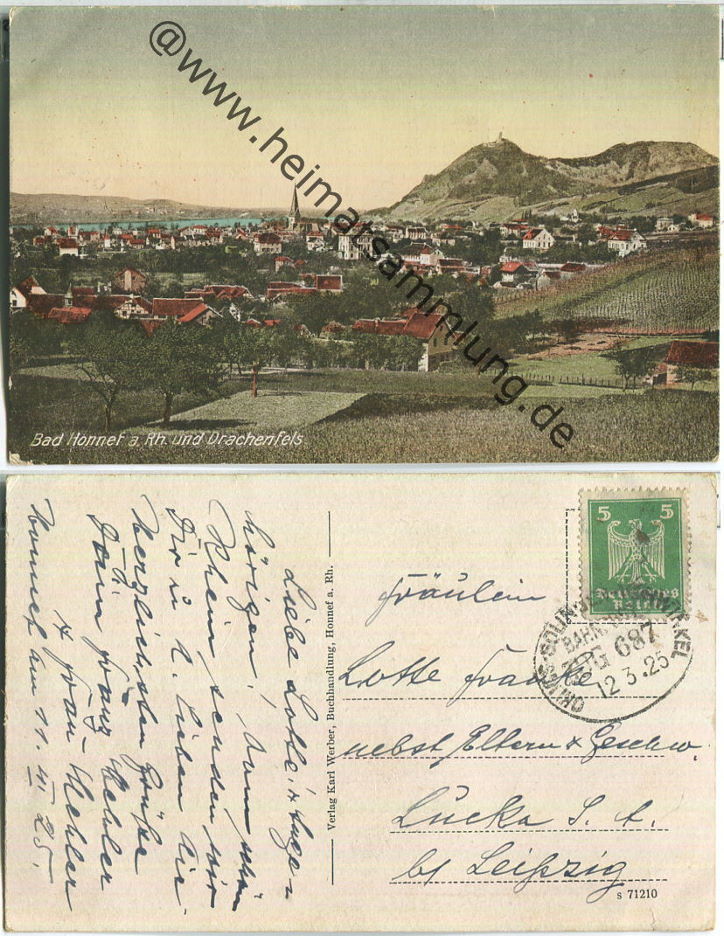 @www.heimatsammlung.de
Bad Honnef a. Rh. und Drachenfels
Liebe Lotte! u. Ange-
hörigen! Vom schön
Rhein senden wir
Dir u. l. Lieben die
herzlichsten Grüße
Dein Franz Mehler
u. Frau Mehler
Honnef am 11. III. 25.
Verlag Karl Werber, Buchhandlung, Honnef a. Rh.
5 5
Deutsches
Reich
OHLIGS-SOLINGEN
BAHNPOST
ZUG 687
12 3.25
Fräulein
Lotte Franke
nebst Eltern & Geschw.
Lucka S. A.
bei Leipzig
s 71210